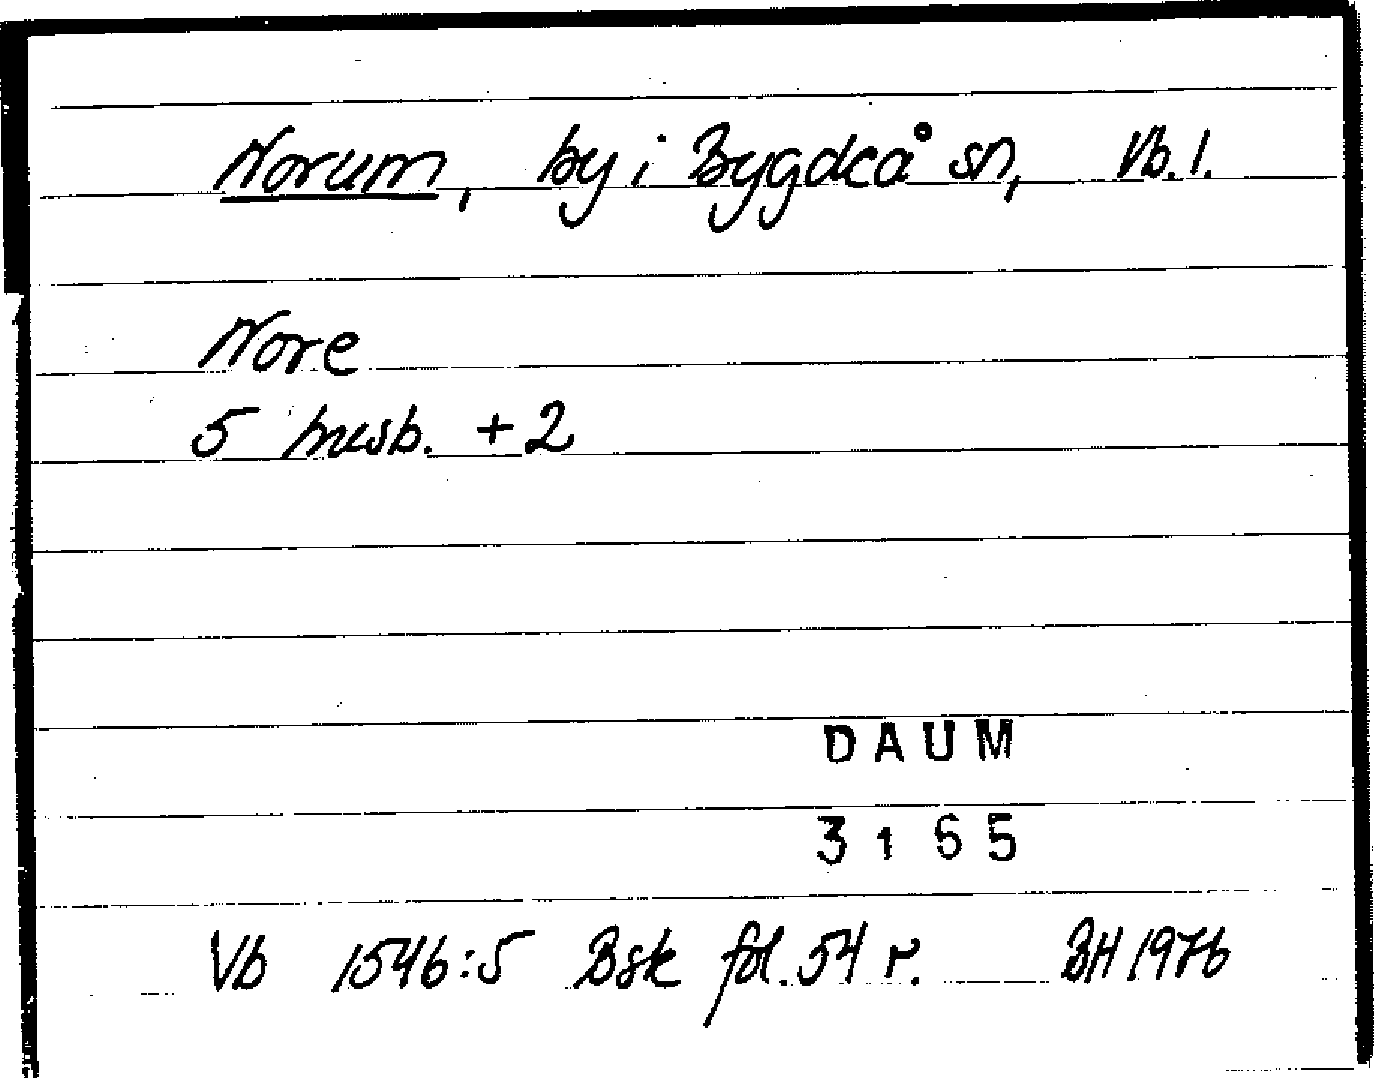 Norum, by i Bygdeå sn, Vb. l.
Nore
5 husb. + 2
DAUM
3165
Vb 1546:5 Bsk fol. 54 r. BH 1976